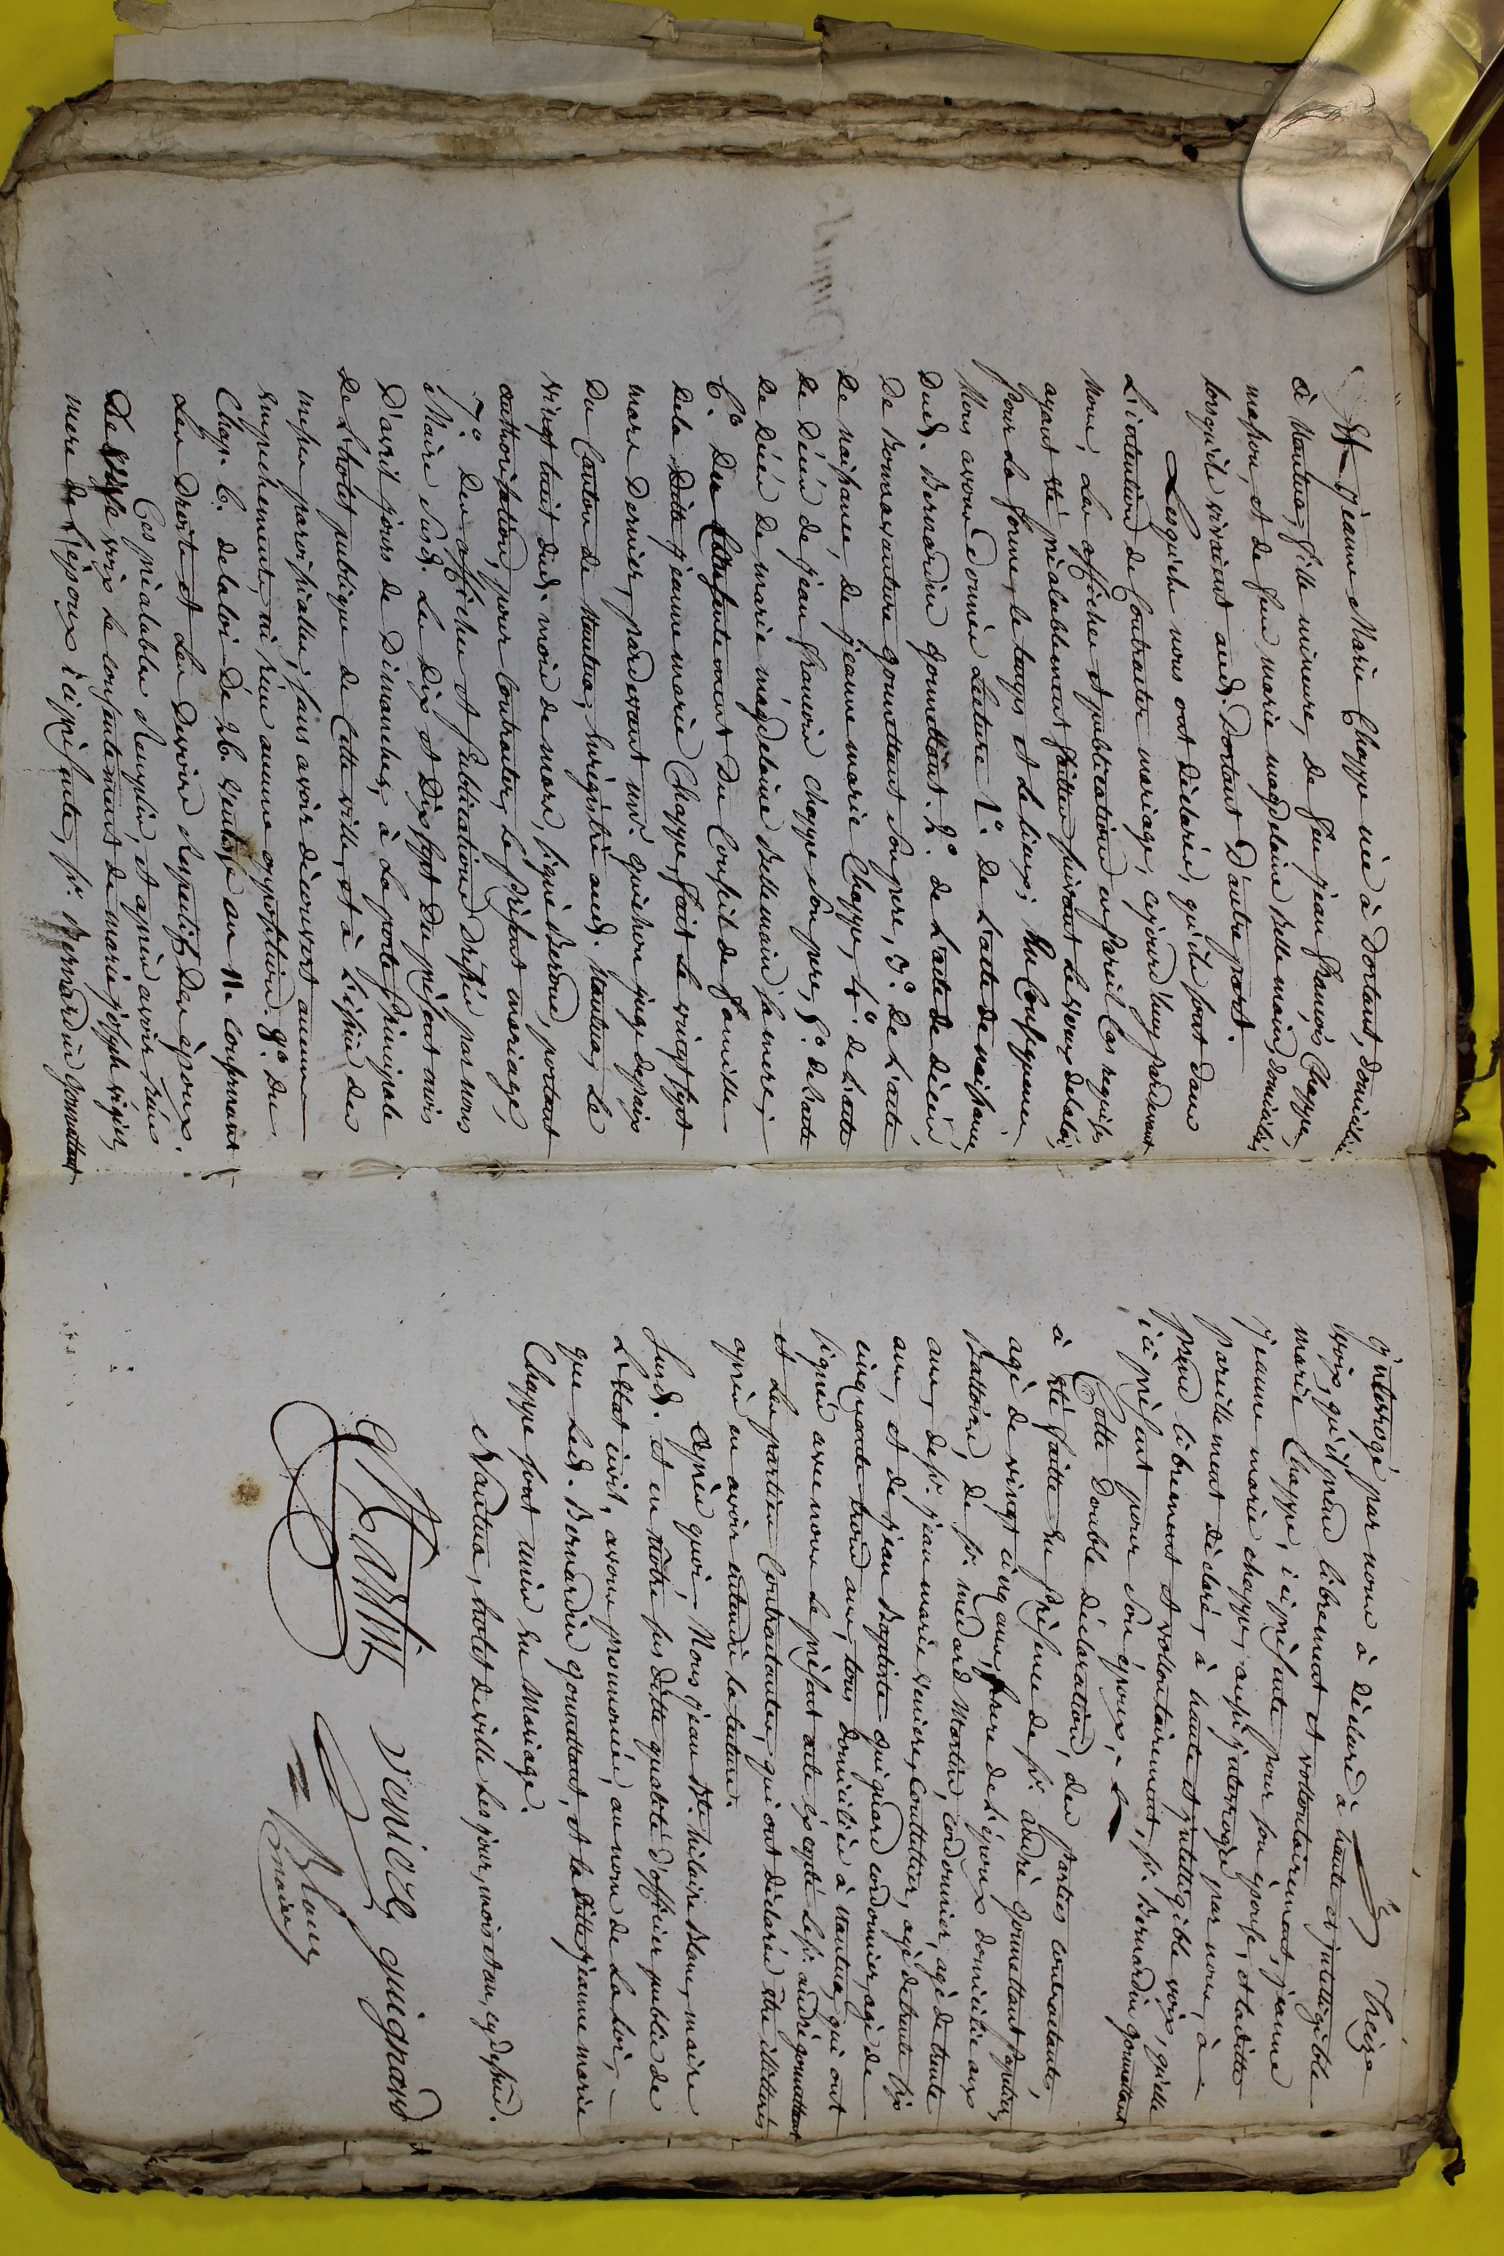 Et jeanne Marie Chappe née à Dortant, domiciliée
à Nantua, fille mineure, de feu jean françois Chappe,
maçon, et de feu marie magdelaine Bellemain, domiciliés
lorsqu'ils vivaient aud. Dortant D'autre part.
Lesquels nous ont déclarés, qu'ils sont dans
L'intention de Contracter mariage, cejourd'huy pardevant
Nous, Les affiches et publications en Pareil Cas requises
ayant été préalablement faittes suivant le Vœux de la loi,
pour la forme, le temps et le lieux; En Conséquence
Nous avons donnés Lecture 1°. De L'acte de naissance,
Dud. Bernardin Gonnettant. 2°. de L'acte de décès,
De Bonnaventure Gonnettant son pere, 3°. De L'acte
De naissance, de jeanne marie Chappe, 4°. de L'acte
de Décès de jean françois Chappe son pere, 5°. de L'acte
de Décès de marie magdelaine Bellemain sa mere,
6°. Du Consentement du Conseil de famille
de la Ditte jeanne marie Chappe, fait le vingt sept
mars dernier, pardevant mr. juge de paix
Du Canton de Nantua, Enrégistré aud. Nantua, le
vingt huit dud. mois de mars, signé Beroud, portant
authorisation, pour Contracter, le Présent mariage,
7°. Des affiches et Publications Dressés par nous
Maire susd. Les Dix et Dix sept Du présent mois
D'avril jours de Dimanches, à La porte Principale
De L'hotel publique de Cette ville, et à L'église des
messes paroissialles, sans avoir découvert aucun
Empéchement, ni reçu aucune opposition. 8°. Du
Chap. 6. de la loi Dé 26. Ventose an 11. Concernant
Les Droits et Les Devoirs Respectifs, Des époux.
Ces préalables Remplis, et après avoir Reçu
De Vive voix le consentement de marie joseph
mere De L'époux ici présente, sr. Bernardin Gonnettant
Treize
interrogé par nous à déclaré à haute et intelligible
voix, qu'il prend librement et volontairement, jeanne
marie Chappe, ici présente pour son épouse, et laditte
jeanne marie chappe, aussi interrogé par nous, à
pareillement déclaré, à haute et intelligible voix, qu'elle
prend librement et vollontairement, sr. Bernardin Gonnettant
ici présent pour son époux,
Cette Double Déclaration, des parties contractantes,
à été faitte En présence de sr. andré Gonnettant
agé de vingt cinq ans, frere de L'époux domicilié aux
Battoirs, de sr. médard Martin, cordonnier, agé de trente
ans, de sr. jean marie Veniere, Couttelier, agé de trente six
ans, et de jean Baptiste Guignard cordonnier, agé de
cinquante trois ans, tous Domiciliés à Nantua, qui ont
signés avec nous le présent acte excepté le sr. andré gonnettant
et Les parties Contractantes, qui ont déclarés être illitterés
après en avoir entendu la lecture.
Après quoi, Nous jean Bte. hilaire Blanc, maire
susd. et en notre sus ditte qualité d'officier public de
L'Etat civil, avons prononcés, au nom de La Loi,
que Led. Bernardin gonnettant, et laditte jeanne marie
Chappe sont unis En Mariage.
Nantua, hotel de ville les jour, mois et an, cy dessus.
Martin Veniere guignard
Blanc
maire